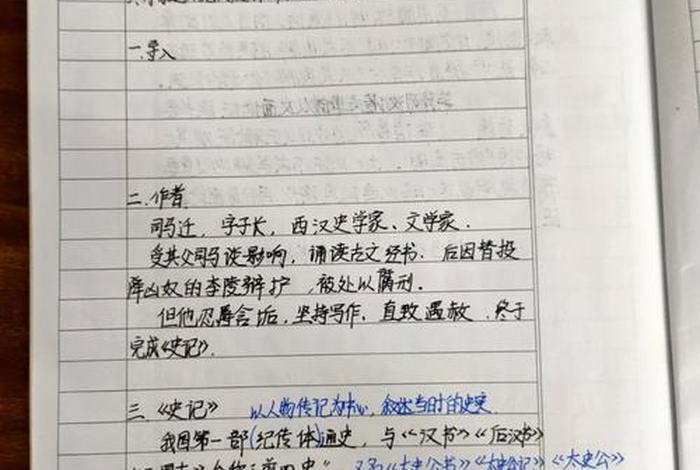 一.导入
二.作者
司马迁，字子长，西汉史学家、文学家.
受其父司马谈影响，诵读古文经书.后因替投
降凶奴的李陵辩护，被处以腐刑.
但他忍辱含垢，坚持写作，直致遇赦.终于
完成《史记》.
三.《史记》 以人物传记为中心，叙述当时的史实
我国第一部(纪传体)通史，与《汉书》《后汉书》
前四史". 又称《太史公书》《太史公记》《太史公》